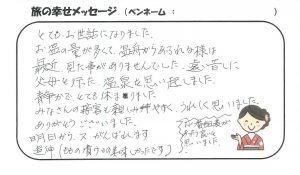 旅の幸せメッセージ (ペンネーム: )
とてもお世話になりました。
お湯の量が多くて、湯舟からあふれる様は
最近 見た事がありませんでした。遠い昔に
父母と行た 温泉を思い起しました。
静かで、とても休まりました。
みなさんの接客も親しみやすく、うれしく思いました。
ありがとうございました。
明日から、又 がんばれます
追伸 の 美味しかったです
思いました。